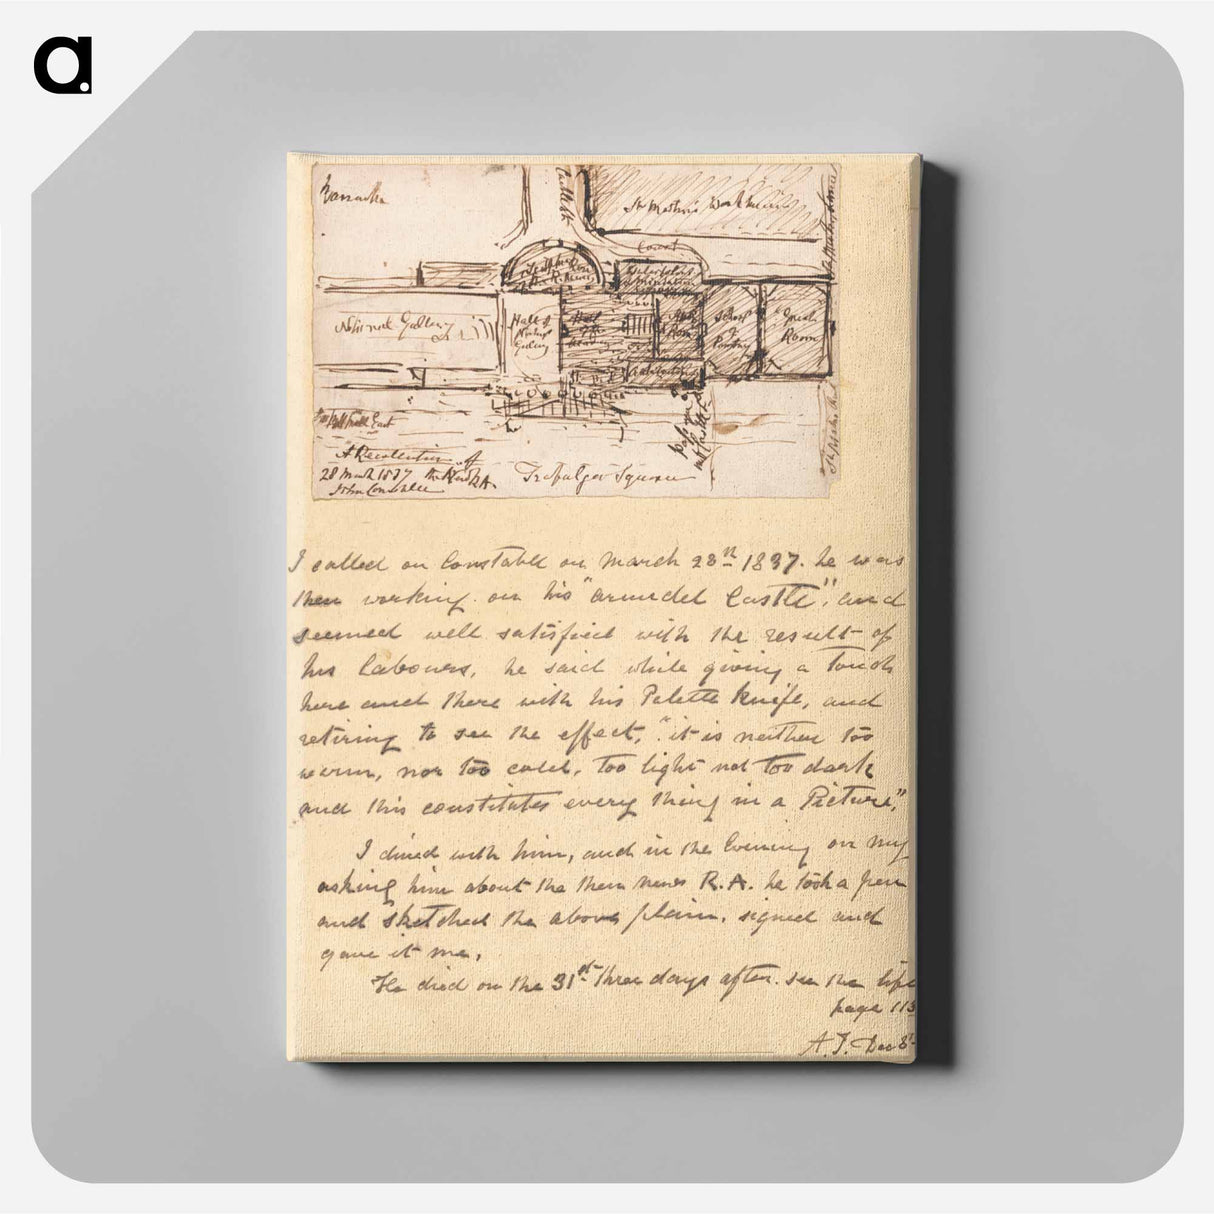 a.
Barracks
Castle St
St Martin's Workhouse
Court
National Gallery
Hall of
National
Gallery
Hall
of the
Academy
School
of
Painting
Great
Room
Pall Mall East
A Recollection of
28 March 1837 the New RA
John Constable
Trafalgar Square
I called on Constable on March 28th 1837. he was
then working on his "Arundel Castle", and
seemed well satisfied with the result of
his labours, he said while giving a touch
here and there with his Palette Knife, and
retiring to see the effect, "it is neither too
warm, nor too cold, too light not too dark
and this constitutes every thing in a Picture",
I dined with him, and in the Evening on my
asking him about the then new R.A. he took a pen
and sketched the above plan, signed and
gave it me.
He died on the 31st three days after. see the life
page 113
A. J.